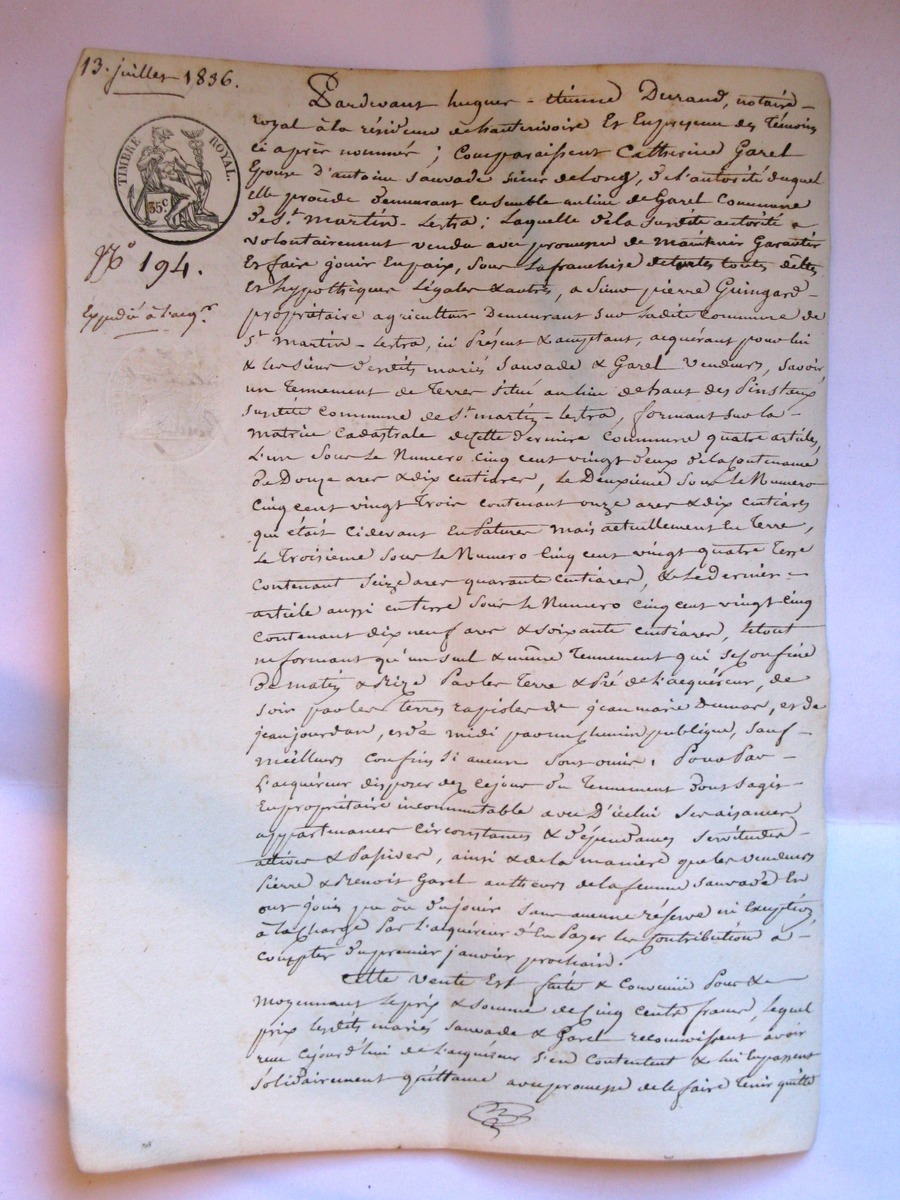 13. juillet 1836.
TIMBRE ROYAL.
35c
No 194.
Expédié à l'acqr.
Pardevant hugues - étienne Durand, notaire -
royal à la résidence de hauterivoire Et En presence des Témoins
ci après nommés ; Comparaissent Catherine Garel
Epouse d'antoine Sauvade sieur de Long, de l'autorité duquel
Elle procède demeurant ensemble au lieu de Garel Commune
De St. Martin - Lestra ; Laquelle de la susdite autorité a
volontairement vendu avec promesse de maintenir Garantir
Et faire jouir En paix, sous la franchise de toutes dettes
Et hypothèques Légales & autres, a Sieur pierre Guingard -
propriétaire agriculteur Demeurant sur ladite Commune de
St. Martin - Lestra, ici Présent & acceptant, acquérant pour lui
& les siens desdits mariés Sauvade & Garel vendeurs, Savoir
un Tennement de Terres Situé au lieu de haut des
Susdite Commune de St. martin - Lestra, formant sur la -
Matrice Cadastrale de cette dernière Commune quatre articles,
L'un Sous le Numero Cinq cent vingt deux de la Contenance
De Douze ares & dix centiares, le Deuxième Sous le Numero
Cinq cent vingt Trois contenant onze ares & dix centiares
qui était Cidevant En Pature mais actuellement En Terre,
Le Troisieme Sous le Numero Cinq Cent vingt quatre Terre
Contenant Seize ares quarante Centiares, & le dernier -
article aussi en terre Sous le Numero Cinq cent vingt Cinq
Contenant dix neuf ares & soixante centiares, le tout
ne formant qu'un seul & même Tennement qui se Confine
De matin & Bize Par les Terre & Pré de L'acquéreur, de
soir par les terres de jean marie Dumas, et de
jean jourdan, et de midi par un chemin publique, sauf -
meilleurs Confins Si aucuns Sont omis. Pour Par -
L'acquéreur disposer dez ce jour du Tennement dont Sagit
En propriétaire incommutable avec D'icelui Ses aisances
appartenances Circonstances & dépendances Servitudes -
actives & Passives, ainsi & de la manière que les vendeurs
Pierre & Benoit Garel autheurs de la femme Sauvade En
ont jouis pu ou du jouir Sans aucune réserve ni Exception,
à la charge Par L'acquéreur d'En Payer les Contribution à -
Compter du premier janvier prochain.
Cette vente Est faite & Convenue Pour & -
Moyennant le prix & Somme de Cinq Cents francs, lequel
prix lesdits mariés Sauvade & Garel reconnaissent avoir
reçu cejourd'hui de L'acquéreur S'en Contentent & lui En passent
Solidairement quittance avec promesse de le faire Tenir quitte